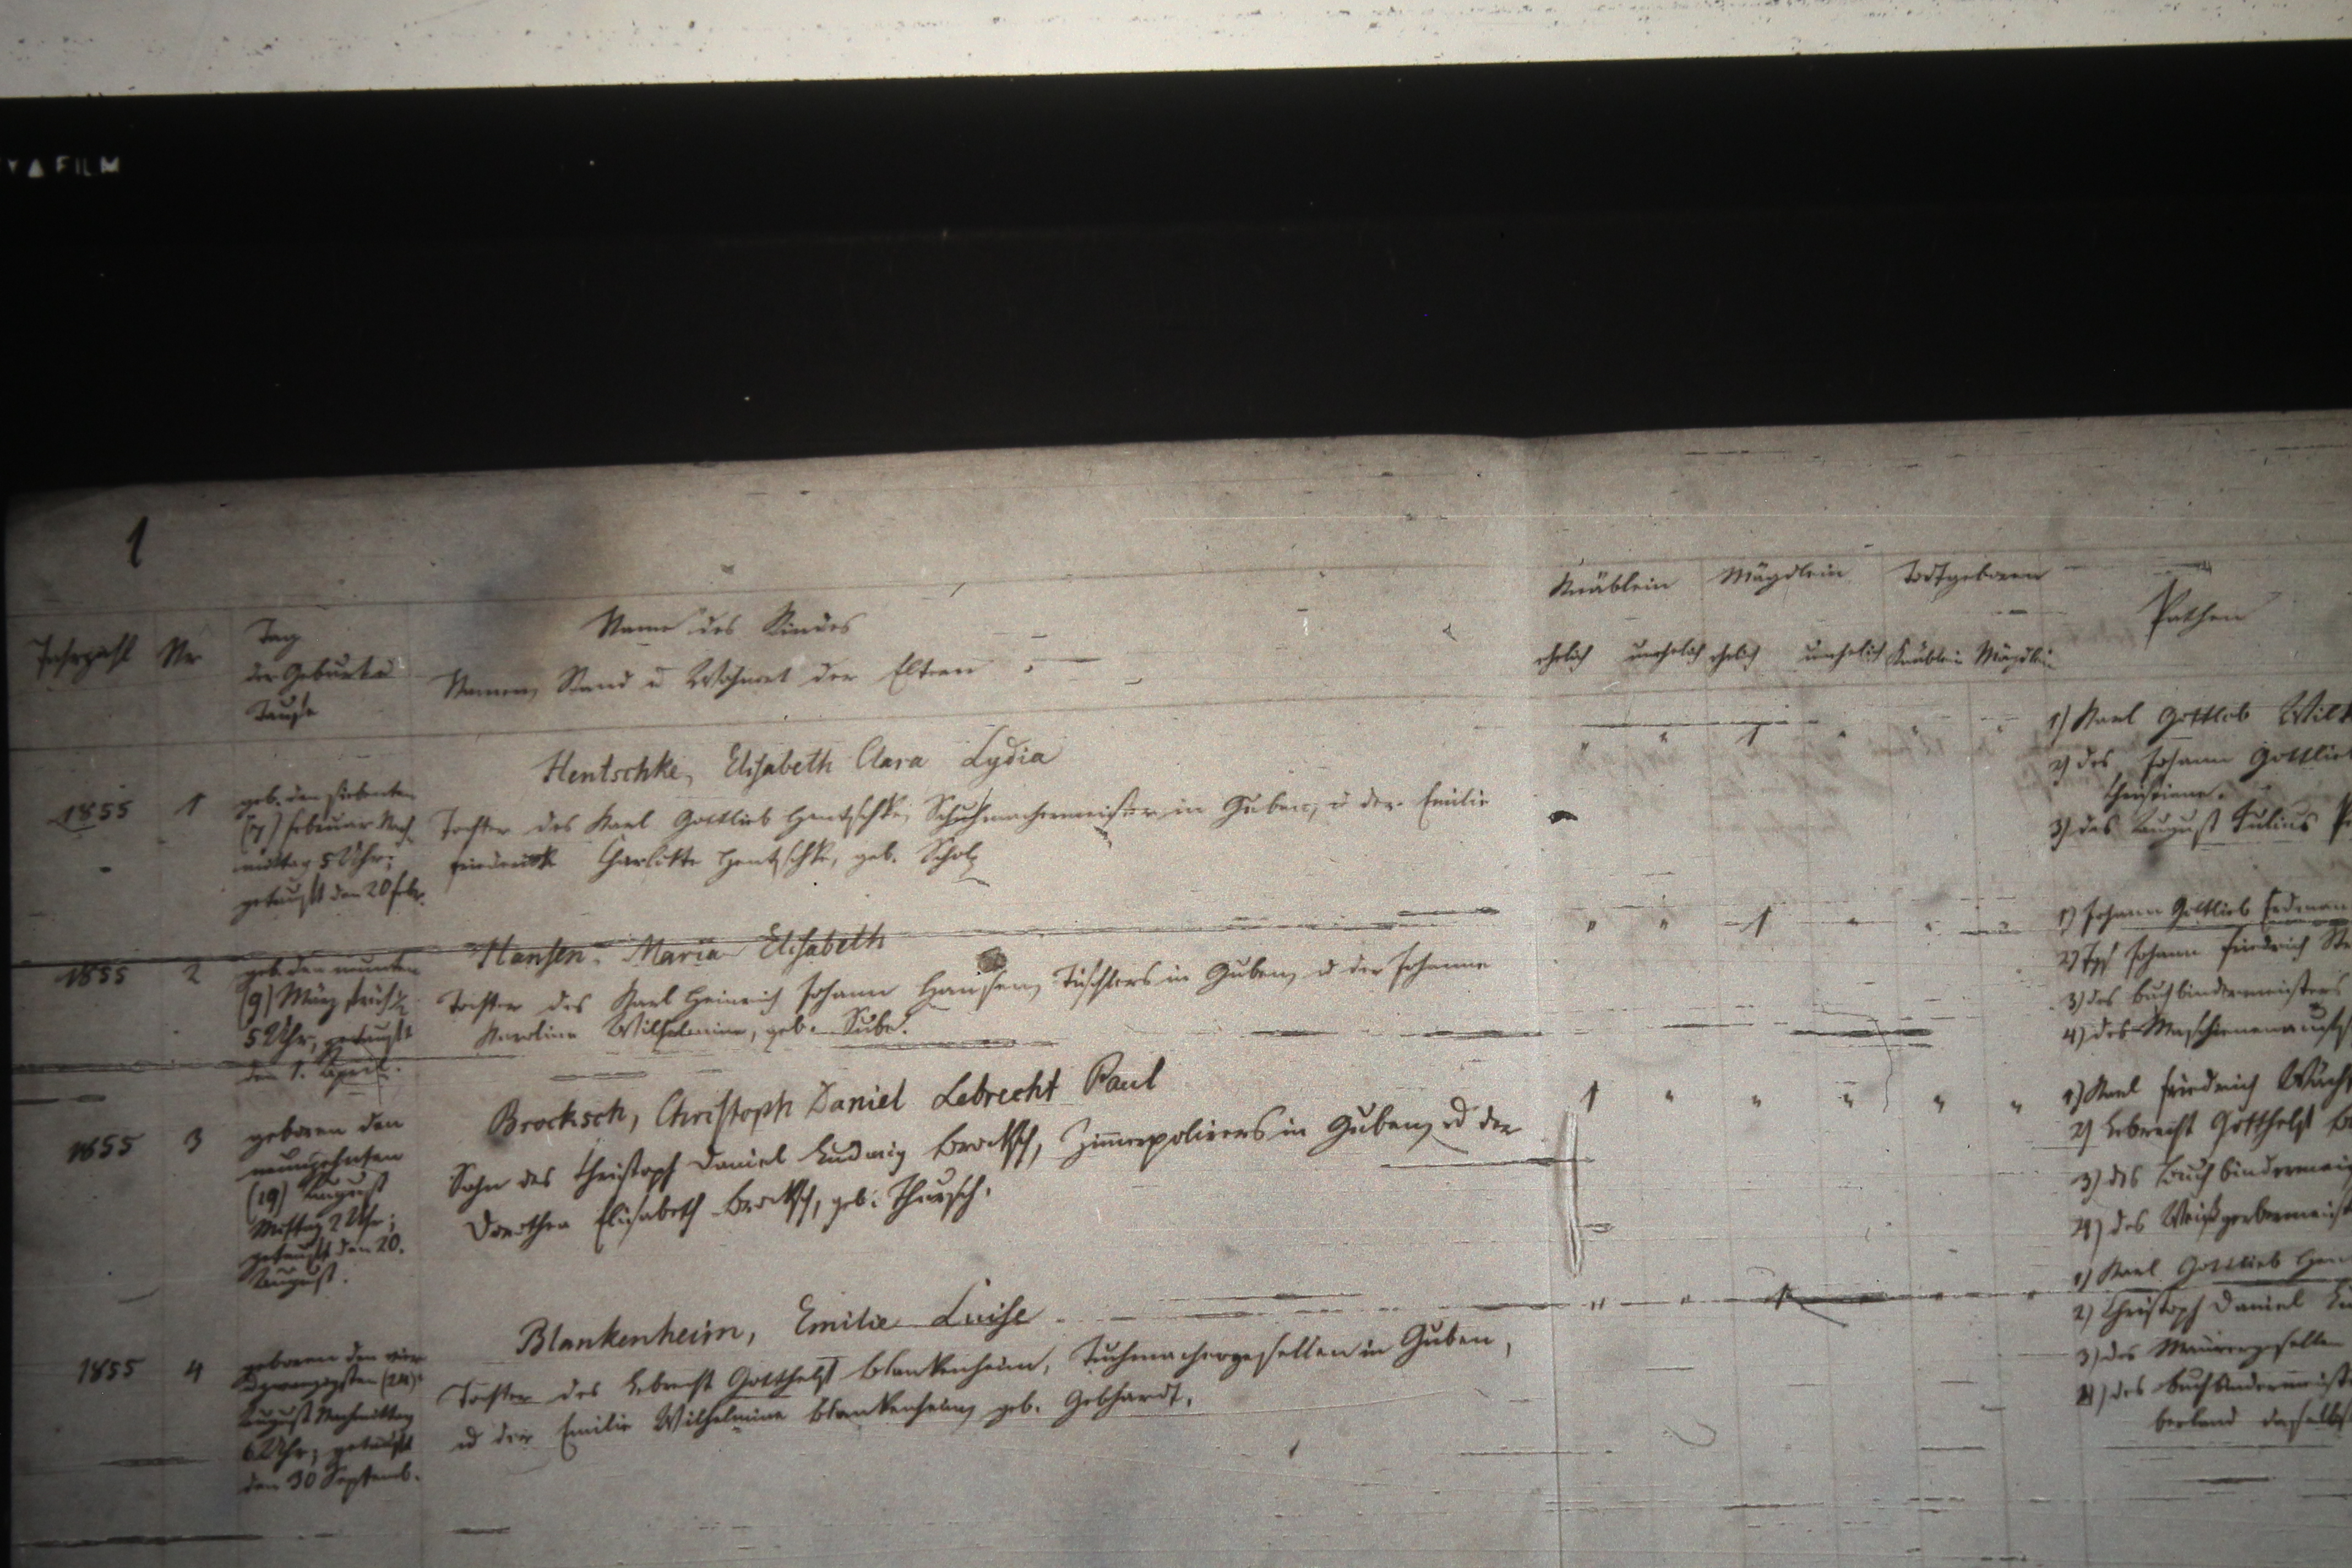 FILM
1
Jahrzahl
Nr
Tag
der Geburt u
Taufe
Name des Kindes
Namen, Stand u Wohnort der Eltern
Knäblein Mägdlein Todtgeboren
ehelich unehelich ehelich unehelich Knäblein Mägdlein
Pathen
1855 1
geb. den siebenten
(7) Februar Nach-
mittag 5 Uhr;
getauft den 20 Febr.
Hentschke, Elisabeth Clara Lydia
Tochter des Karl Gottlieb Hentschke, Schuhmachermeister in Guben, u der Emilie
Friederike Charlotte Hentschke, geb. Scholz
" " 1 " " "
1) Karl Gottlob Wilh
2) des Johann Gottlieb
Christiane.
3) des August Julius
1855 2
geb. den neunten
(9) März früh ½
5 Uhr, getauft
den 1. April.
Hansen, Maria Elisabeth
Tochter des Karl Heinrich Johann Hansen, Tischlers in Guben, u der Johanne
Karoline Wilhelmine, geb.
" " 1 " " "
1) Johann Gottlieb Erdman
2) Johann Friedrich
3) des Buchbindermeisters
4) des
1855 3
geboren den
neunzehnten
(19) August
Mittag 2 Uhr;
getauft den 20.
August.
Brocksch, Christoph Daniel Lebrecht Paul
Sohn des Christoph Daniel Ludwig Brocksch, Zimmerpolierers in Guben, u der
Dorothea Elisabeth Brocksch, geb.
1 " " " " "
1) Karl Friedrich
2) Lebrecht Gotthelf
3) des Buchbindermei
4) des Weißgerbermeist
1855 4
geboren den vier
u zwanzigsten (24)
August Nachmittag
6 Uhr; getauft
den 30 Septemb.
Blankenheim, Emilie Luise
Tochter des Lebrecht Gotthelf Blankenheim, Tuchmachergesellen in Guben,
u der Emilie Wilhelmine Blankenheim, geb. Gebhardt.
" " 1 " " "
1) Karl Gottlieb Hen
2) Christoph Daniel
3) des Maurergesellen
4) des Buchbindermeist
daselbst